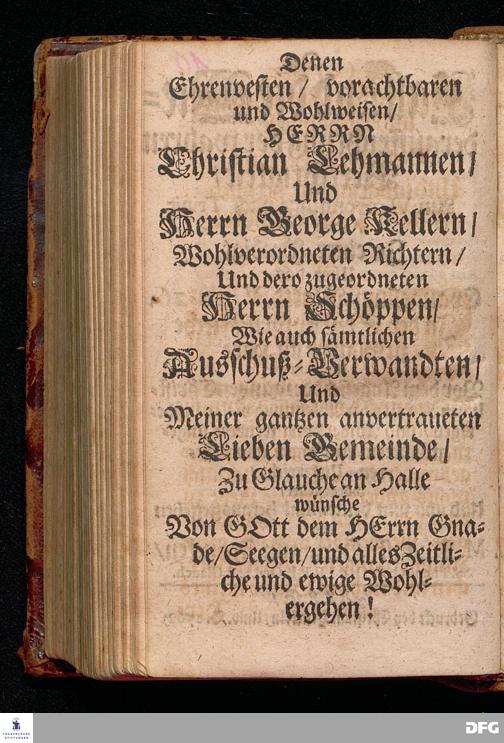 Denen
Ehrenvesten / vorachtbaren
und Wohlweisen/
HERRN
Christian Lehmannen/
Und
Herrn George Kellern/
Wohlverordneten Richtern/
Und dero zugeordneten
Herrn Schöppen/
Wie auch sämtlichen
Ausschuß-Verwandten/
Und
Meiner gantzen anvertraueten
Lieben Gemeinde/
Zu Glauche an Halle
wünsche
Von GOtt dem HErrn Gna-
de/Seegen/und alles Zeitli-
che und ewige Wohl-
ergehen!
FRANCKESCHE
STIFTUNGEN
DFG